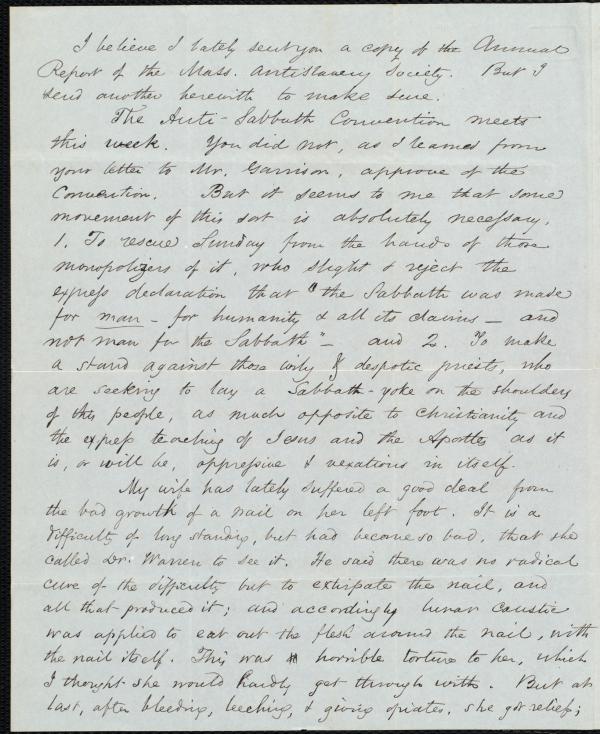 I believe I lately sent you a copy of the Annual
Report of the Mass. Antislavery Society. But I
send another herewith to make sure.
The Anti-Sabbath Convention meets
this week. You did not, as I learned from
your letter to Mr. Garrison, approve of the
Convention. But it seems to me that some
movement of this sort is absolutely necessary.
1. To rescue Sunday from the hands of those
monopolizers of it, who slight & reject the
express declaration that "the Sabbath was made
for man – for humanity & all its claims – and
not man for the Sabbath" – and 2. To make
a stand against those wily & despotic priests, who
are seeking to lay a Sabbath-yoke on the shoulders
of this people, as much opposite to Christianity and
the express teaching of Jesus and the Apostles as it
is, or will be, oppressive & vexatious in itself.
My wife has lately suffered a good deal from
the bad growth of a nail on her left foot. It is a
difficulty of long standing, but had become so bad, that she
called Dr. Warren to see it. He said there was no radical
cure of the difficulty but to extirpate the nail, and
all that produced it; and accordingly lunar caustic
was applied to eat out the flesh around the nail, with
the nail itself. This was horrible torture to her, which
I thought she would hardly get through with. But at
last, after bleeding, leeching, & giving opiates, she got relief;